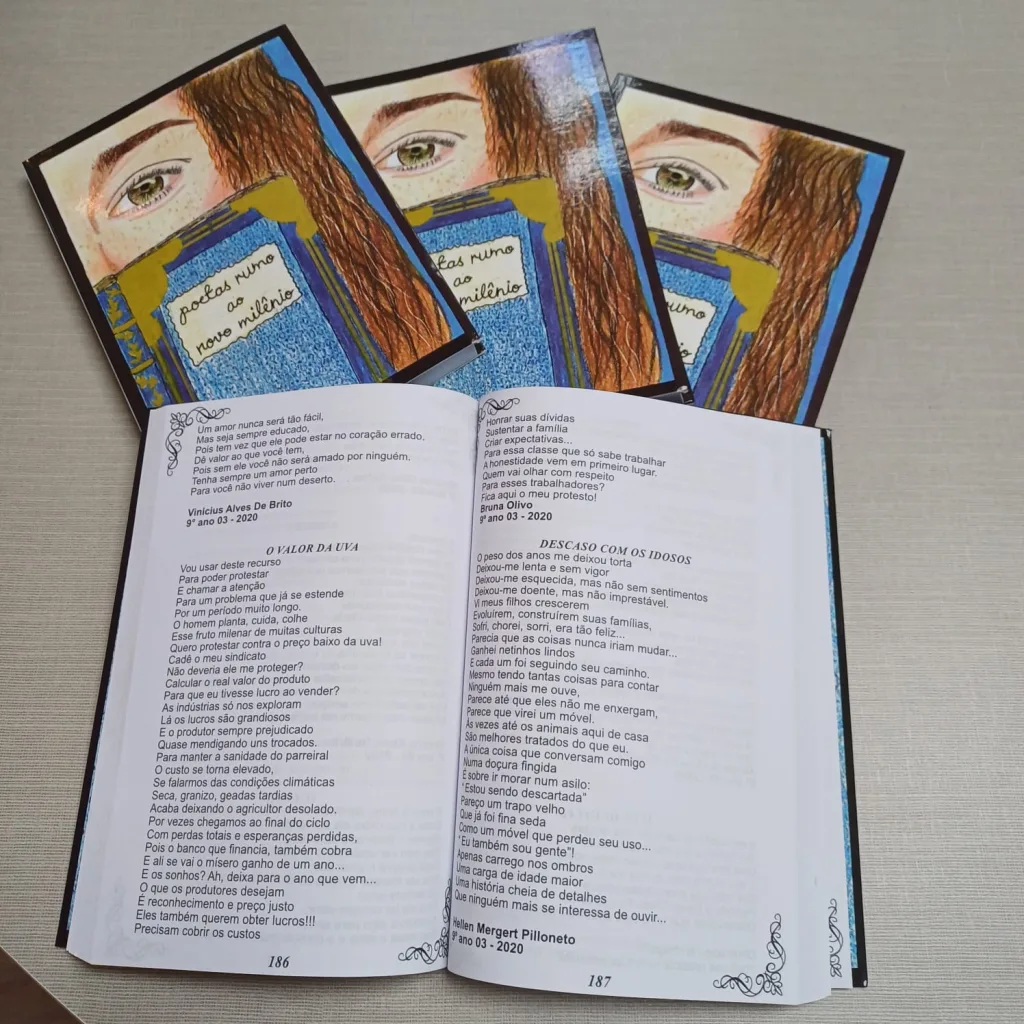 poetas rumo
ao
novo milênio
tas rumo
ao
milênio
rumo
Um amor nunca será tão fácil,
Mas seja sempre educado,
Pois tem vez que ele pode estar no coração errado.
Dê valor ao que você tem,
Pois sem ele você não será amado por ninguém.
Tenha sempre um amor perto
Para você não viver num deserto.
Vinicius Alves De Brito
9º ano 03 - 2020
O VALOR DA UVA
Vou usar deste recurso
Para poder protestar
E chamar a atenção
Para um problema que já se estende
Por um período muito longo.
O homem planta, cuida, colhe
Esse fruto milenar de muitas culturas
Quero protestar contra o preço baixo da uva!
Cadê o meu sindicato
Não deveria ele me proteger?
Calcular o real valor do produto
Para que eu tivesse lucro ao vender?
As indústrias só nos exploram
Lá os lucros são grandiosos
E o produtor sempre prejudicado
Quase mendigando uns trocados.
Para manter a sanidade do parreiral
O custo se torna elevado,
Se falarmos das condições climáticas
Seca, granizo, geadas tardias
Acaba deixando o agricultor desolado.
Por vezes chegamos ao final do ciclo
Com perdas totais e esperanças perdidas,
Pois o banco que financia, também cobra
E ali se vai o mísero ganho de um ano...
E os sonhos? Ah, deixa para o ano que vem...
O que os produtores desejam
É reconhecimento e preço justo
Eles também querem obter lucros!!!
Precisam cobrir os custos
186
Honrar suas dívidas
Sustentar a família
Criar expectativas...
Para essa classe que só sabe trabalhar
A honestidade vem em primeiro lugar.
Quem vai olhar com respeito
Para esses trabalhadores?
Fica aqui o meu protesto!
Bruna Olivo
9º ano 03 - 2020
DESCASO COM OS IDOSOS
O peso dos anos me deixou torta
Deixou-me lenta e sem vigor
Deixou-me esquecida, mas não sem sentimentos
Deixou-me doente, mas não imprestável.
Vi meus filhos crescerem
Evoluírem, construírem suas famílias,
Sofri, chorei, sorri, era tão feliz...
Parecia que as coisas nunca iriam mudar...
Ganhei netinhos lindos
E cada um foi seguindo seu caminho.
Mesmo tendo tantas coisas para contar
Ninguém mais me ouve,
Parece até que eles não me enxergam,
Parece que virei um móvel.
Às vezes até os animais aqui de casa
São melhores tratados do que eu.
A única coisa que conversam comigo
Numa doçura fingida
É sobre ir morar num asilo:
"Estou sendo descartada"
Pareço um trapo velho
Que já foi fina seda
Como um móvel que perdeu seu uso...
"Eu também sou gente"!
Apenas carrego nos ombros
Uma carga de idade maior
Uma história cheia de detalhes
Que ninguém mais se interessa de ouvir...
Hellen Mergert Pilloneto
9º ano 03 - 2020
187